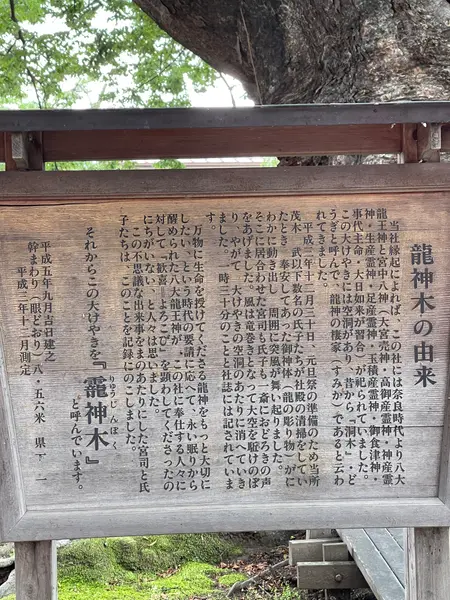 龍神木の由来
当社縁起によれば、この社には奈良時代より八大
龍王神と宮中八神（大宮売神・高御産霊神・神産霊
神・生産霊神・足産霊神・玉積産霊神・御食津神・
事代主命・大日如来が習合）が祀られていました。
この大けやきには空洞があり、昔から『洞木』・ど
うぎと呼んで、龍神の棲家（すみか）であると云わ
れてきました。
平成二年十二月三十日、元日祭の準備のため当所
茂木 武以下数名の氏子たちが社殿の清掃をしてい
たとき、奉安してあった御神体（龍の彫り物）がに
わかに動き出し、周囲に突風が舞い起りました。
そこに居合わせた宮司も氏子も、一斉におどろきの声
をあげました。風は竜巻きとなって大空を駈けのぼ
り、やがて、大けやきの空洞のあたりに消えていき
ました。一時三十分のことと社誌には記されていま
す。
万物に生命を授けてくださる龍神をもっと大切に
したい、という時代の要請に応へて、永い眠りから
醒められた大龍王神が、この社に奉仕する人々に
対して『歓喜』・よろこび を顕わしてくださったの
にちがいない、と人々は思いました。
この不思議な出来事をまのあたりにした宮司と氏
子たちは、このことを記録にのこしました。
それからこの大けやきを『龗神木』
りゅうじんぼく
と呼んでいます。
平成五年九月吉日建之
幹まわり（眼どおり）八・五六米
平成三年十二月測定